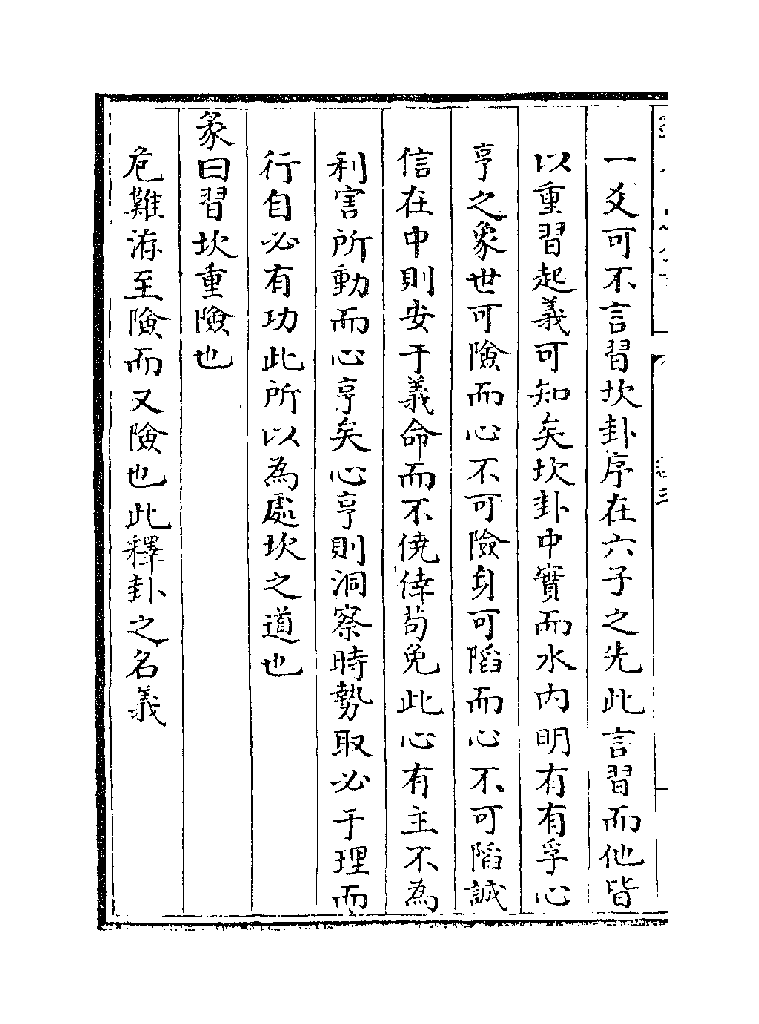 一爻可不言習坎卦序在六子之先此言習而他皆
以重習起義可知矣坎卦中實而水内明有有孚心
亨之象世可險而心不可險身可陷而心不可陷誠
信在中則安于義命而不僥倖茍免此心有主不為
利害所動而心亨矣心亨則洞察時勢取必于理而
行自必有功此所以為處坎之道也
彖曰習坎重險也
危難洊至險而又險也此釋卦之名義